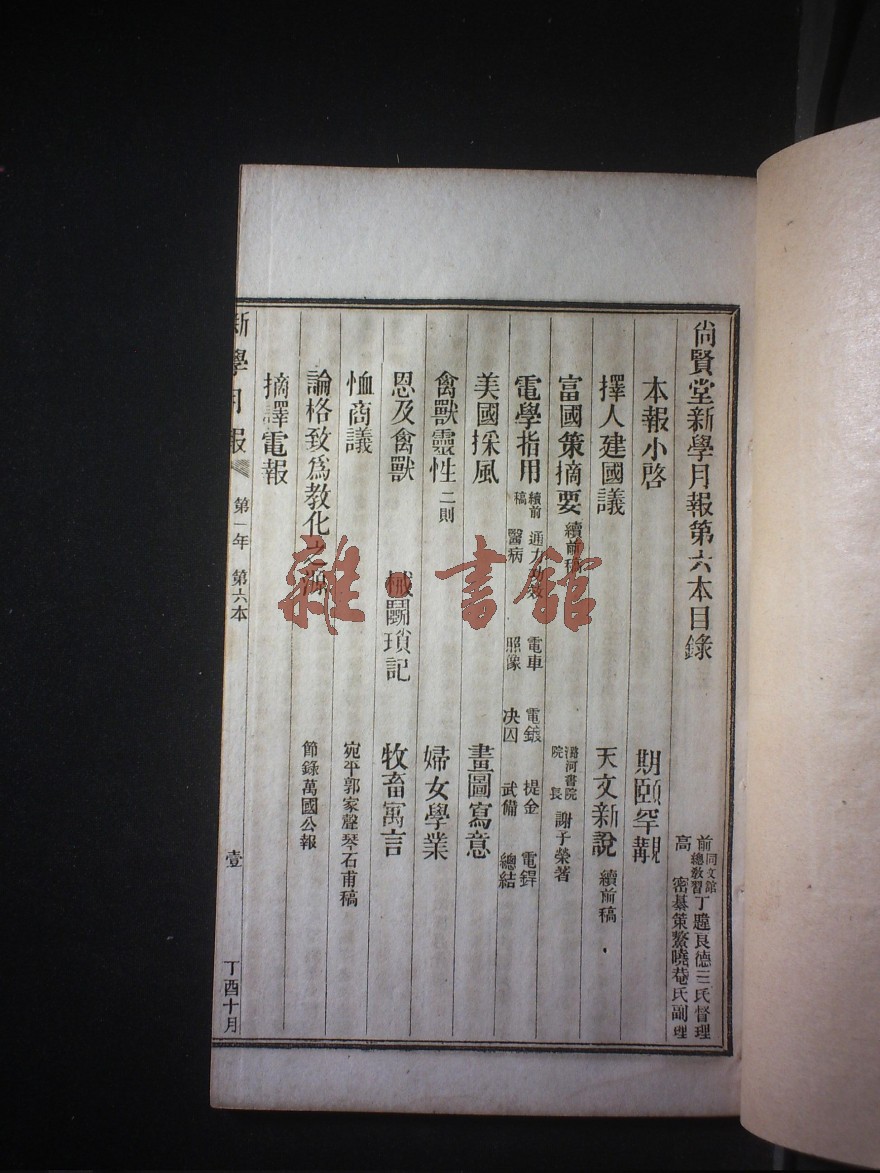 尙賢堂新學月報第六本目錄
前同文館總教習丁韙良德三氏督理
高 密綦策鰲曉菴氏副理
本報小啓 期頤罕覯
擇人建國議 天文新說 續前稿
富國策摘要 續前稿 潞河書院院長 謝子榮著
電學指用 續前稿 通力功效 醫病 電車 照像 電鍍 决囚 提金 武備 電鋅 總結
美國採風 畫圖寫意
禽獸靈性 二則 婦女學業
恩及禽獸 械鬭瑣記 牧畜寓言
恤商議 宛平郭家聲琴石甫稿
論格致爲教化之源 節錄萬國公報
摘譯電報
新學月報 第一年 第六本 壹 丁酉十月
雜·書館